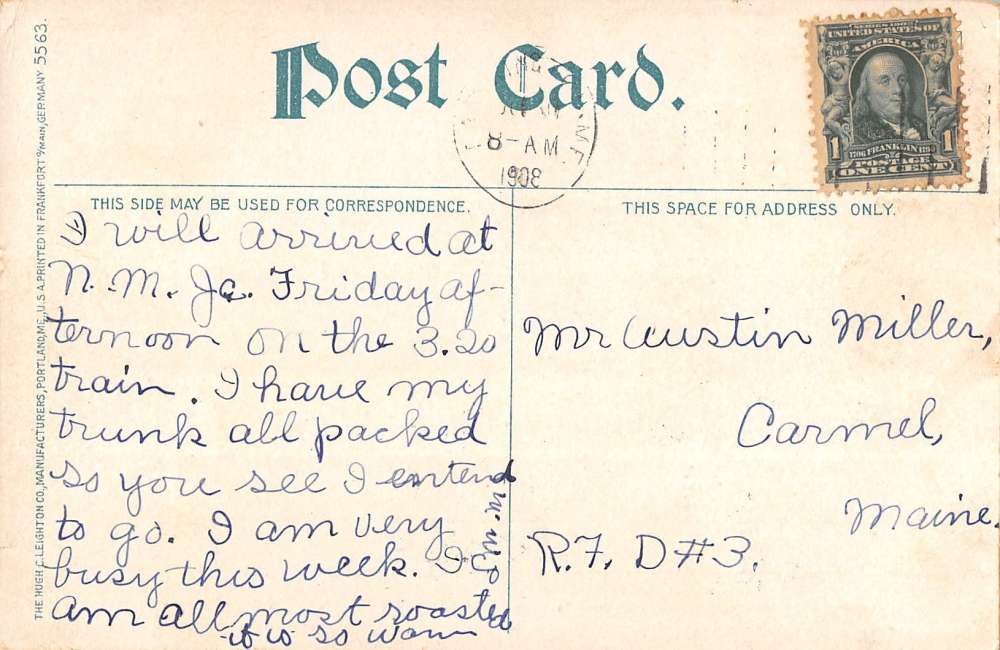 Post Card.
SERIES 1902
UNITED STATES OF
AMERICA
1 1
1706 FRANKLIN 1790
POSTAGE
ONE CENT
8-AM
1908
THE HUGH C. LEIGHTON CO., MANUFACTURERS, PORTLAND, ME., U.S.A. PRINTED IN FRANKFORT a/MAIN, GERMANY 5563.
THIS SIDE MAY BE USED FOR CORRESPONDENCE.
I will arrived at
N. M. Jc. Friday af-
ternoon on the 3.20
train. I have my
trunk all packed
so you see I entend
to go. I am very
busy this week. I
am all most roasted
it is so warm
THIS SPACE FOR ADDRESS ONLY.
Mr Austin Miller,
Carmel,
Maine.
R.F. D#3.